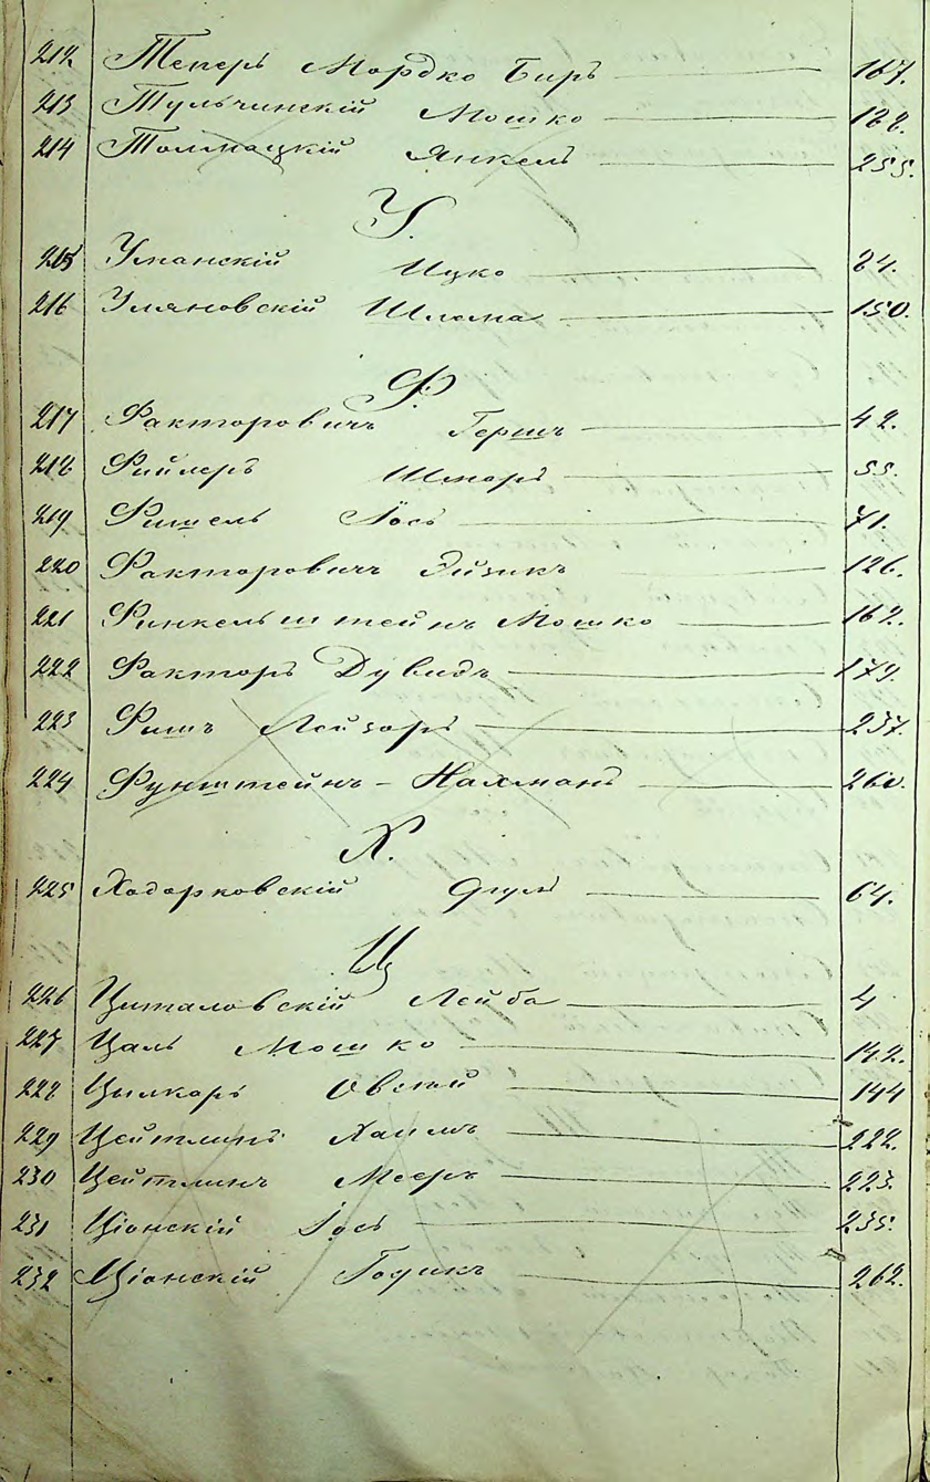 212 Теперъ Мордко Биръ 167.
213 Тульчинскій Мошко 188.
214 Толмацкій Янкель 255.
У.
215 Уманскій Ицко 84.
216 Уляновскій Шлема 150.
Ф.
217 Факторовичъ Гершъ 42.
218 Фийлеръ Шмаръ 55.
219 Фишель Іось 71.
220 Факторовичъ Эйзикъ 126.
221 Финкельштейнъ Мошко 162.
222 Факторъ Дувидъ 179.
223 Фишъ Лейзоръ 237.
224 Фунштейнъ - Нахманъ
Х.
225 Ходорковскій 64.
Ц
226 Циталовскій Лейба 4
227 Цаль Мошко 142.
228 Цымкаръ Овсѣй 144
229 Цейтлинъ Хаимъ 222.
230 Цейтлинъ Мееръ 223.
231 Ціонскій Іось 235.
232 Ціонскій Годикъ 262.